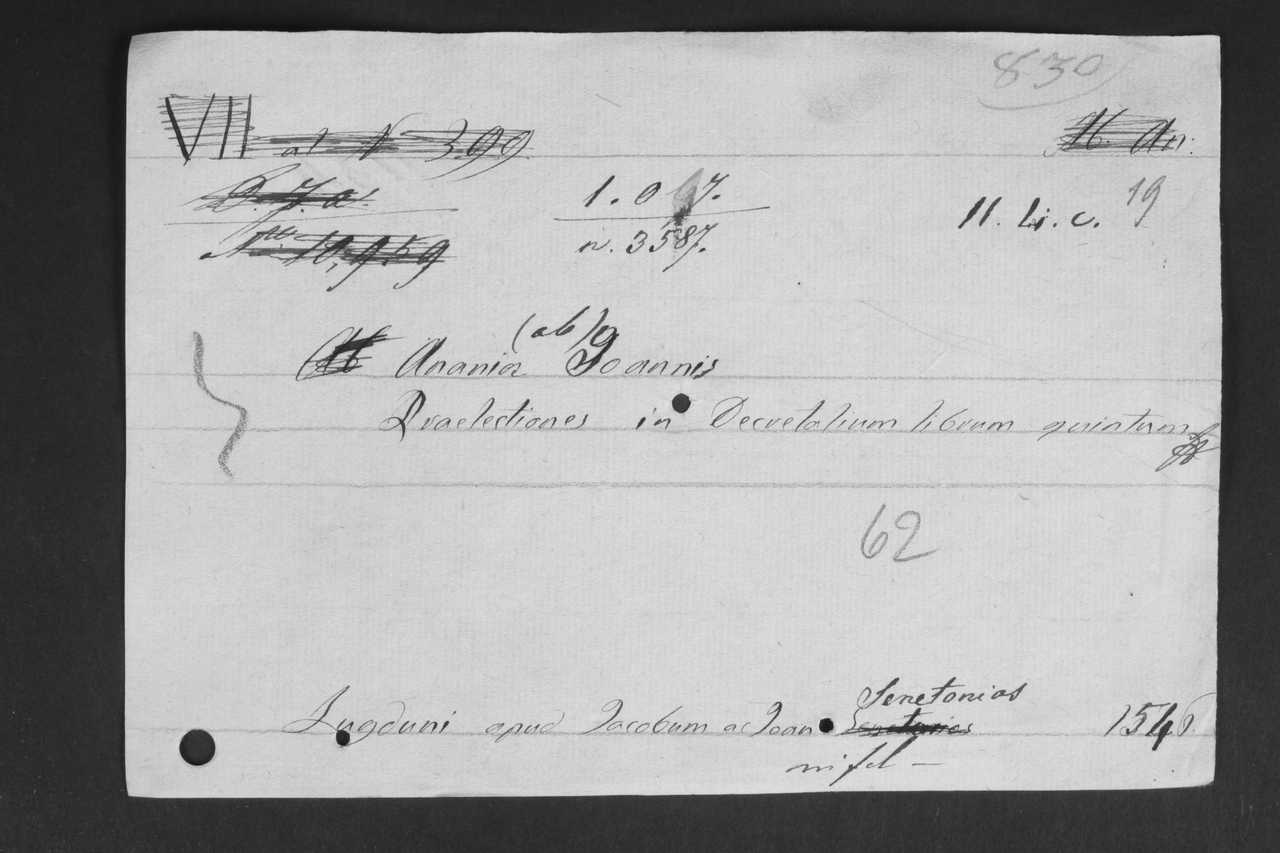 830
VII al N 399
1.0 7.
11. Li. c. 19
No 10,959
n. 3587.
(ab)
Anania Joannis
Praelectiones in Decretalium librum quintum
62
Senetonios
Lugduni apud Jacobum ac Joan 1546
in fol —